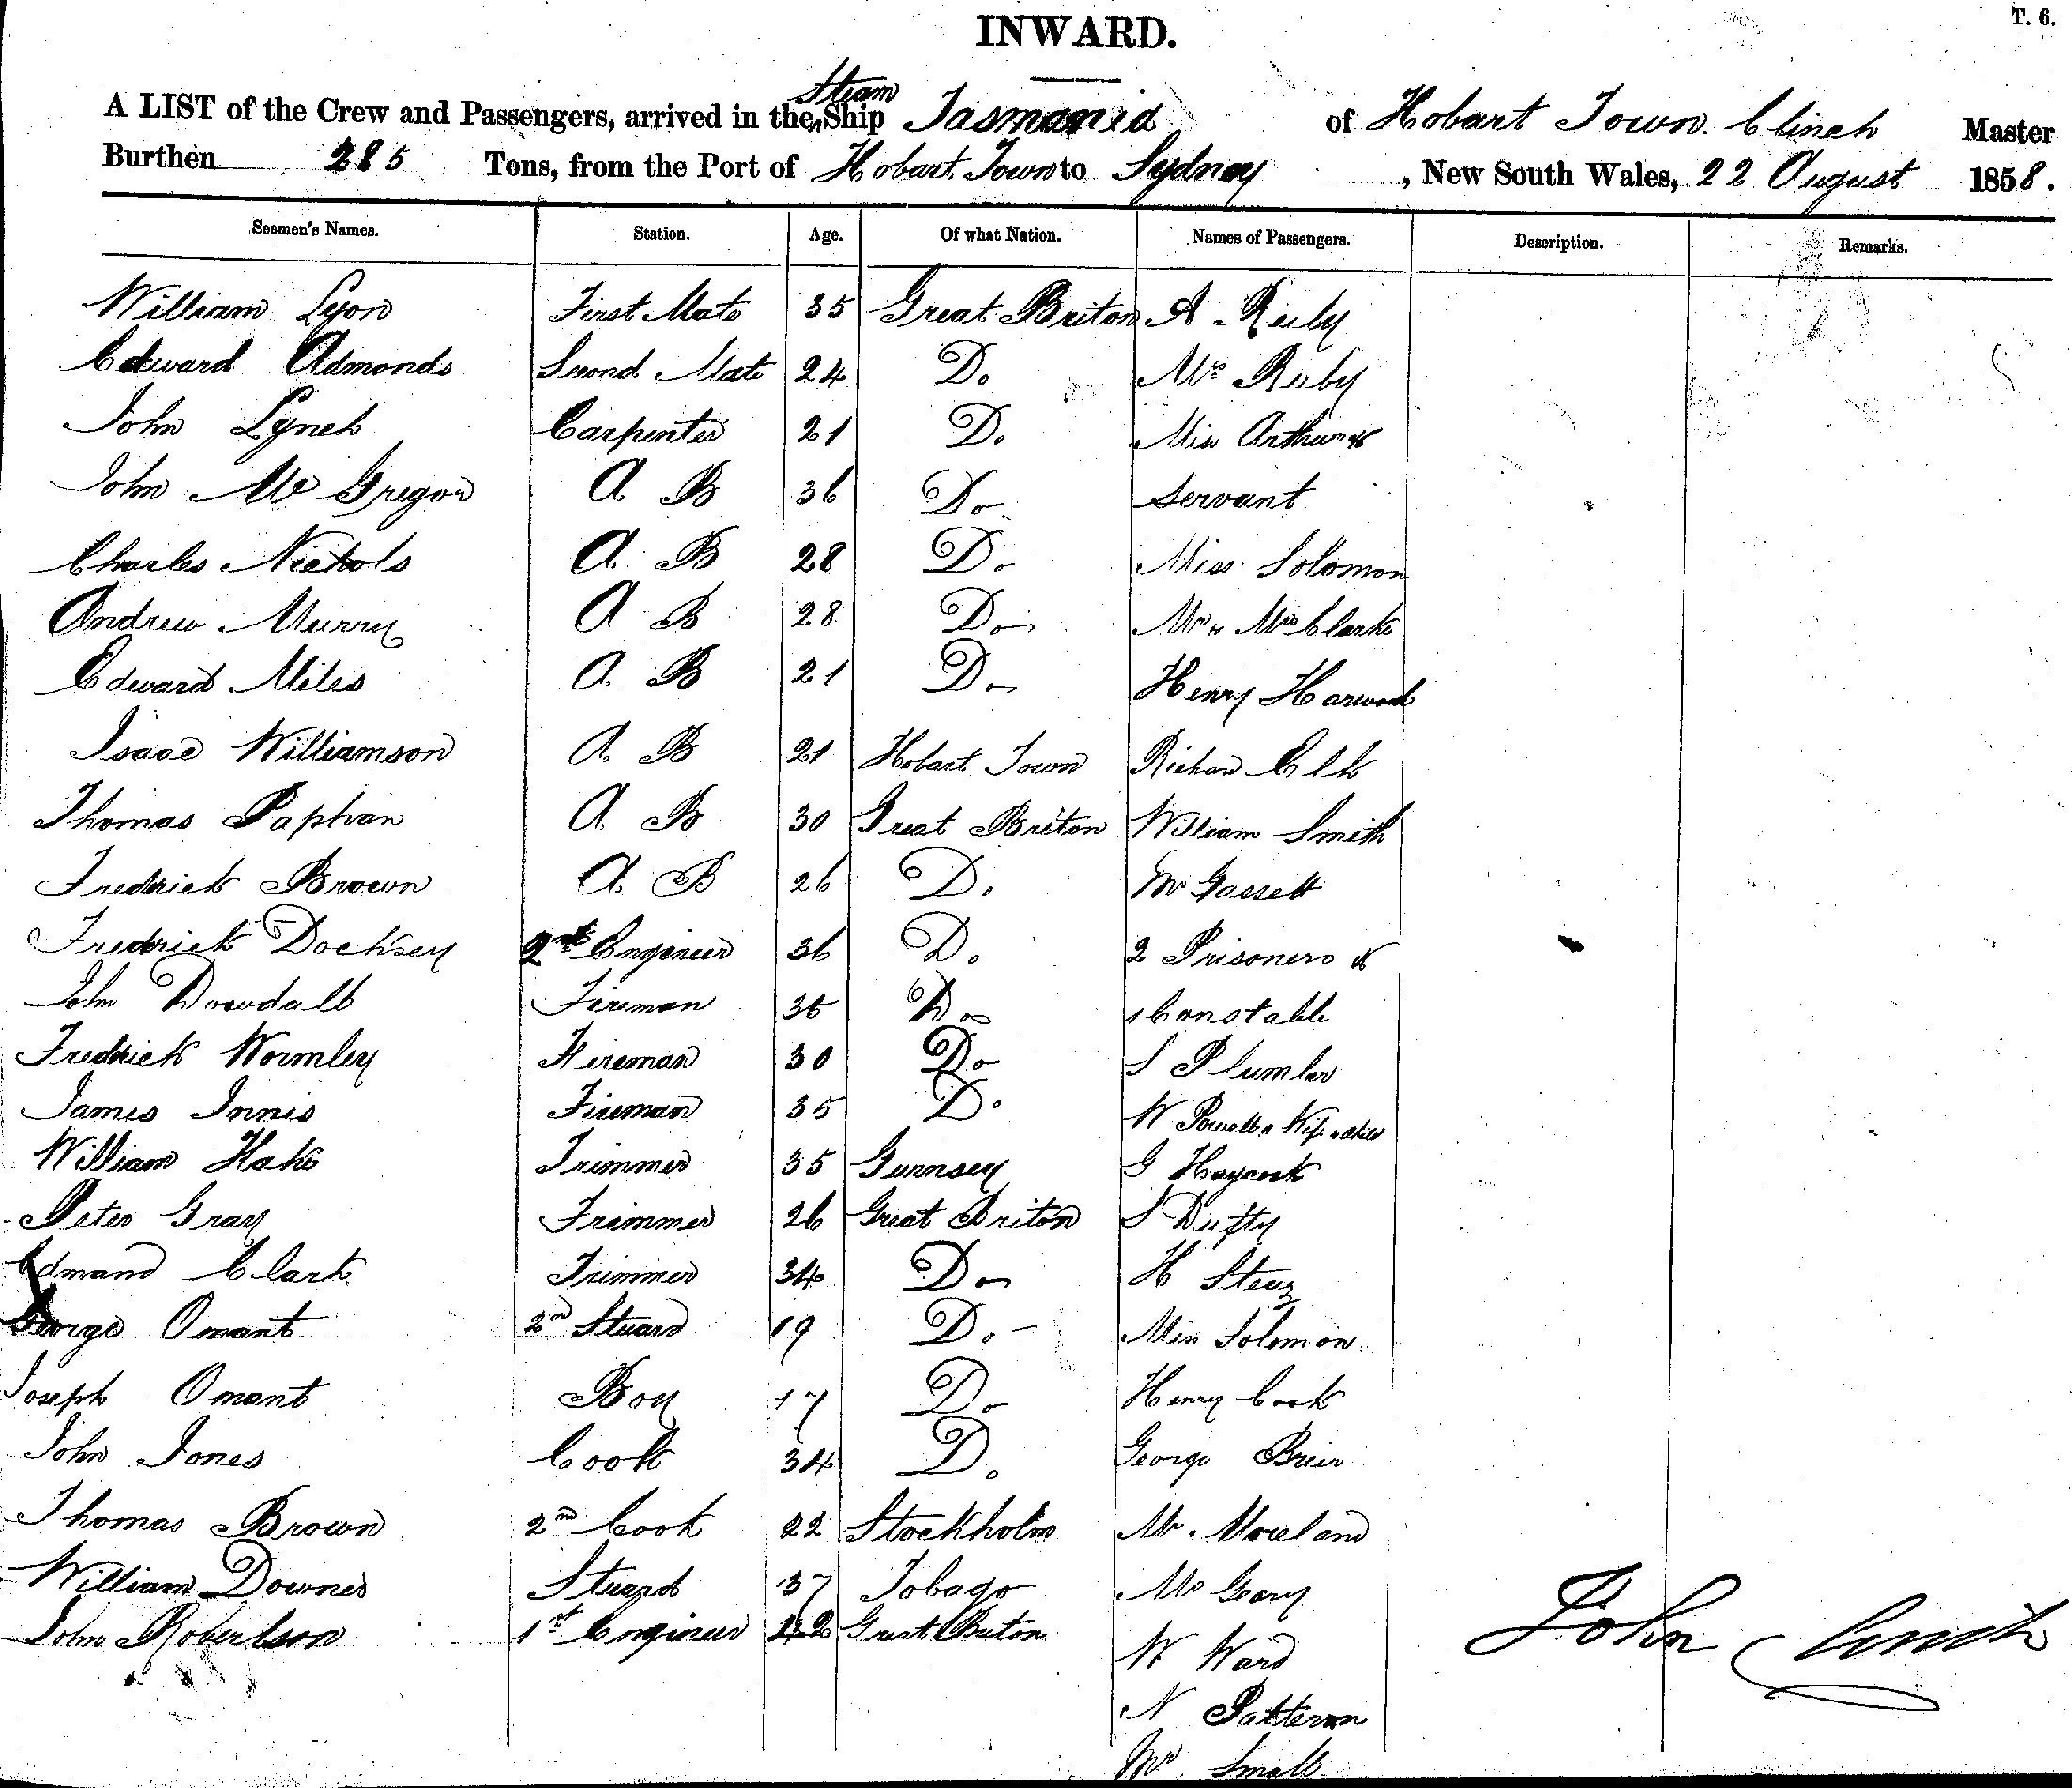 T. 6.
INWARD.
A LIST of the Crew and Passengers, arrived in the Steam Ship Tasmania of Hobart Town Clinch Master
Burthen 285 Tons, from the Port of Hobart Town to Sydney, New South Wales, 22 August 1858.
Seamen's Names. Station. Age. Of what Nation. Names of Passengers. Description. Remarks.
William Lyon First Mate 35 Great Briton A Ruby
Edward Admonds Second Mate 24 Do Mrs Ruby
John Lynch Carpenter 21 Do Miss Arthur &
John McGregor A B 36 Do Servant
Charles Nichols A B 28 Do Miss Solomon
Andrew Murry A B 28 Do Mr & Mrs Clarke
Edward Miles A B 21 Do Henry Harwood
Isaac Williamson A B 21 Hobart Town
Thomas Paphan A B 30 Great Briton William Smith
Fredrick Brown A B 26 Do Mr Gassett
Fredrick Docksey 2nd Engineer 36 Do 2 Prisoners &
John Dowdall Fireman 35 Do 1 Constable
Fredrick Wormley Fireman 30 Do S Plumber
James Innis Fireman 35 Do W Powell & Wife & Child
William Hake Trimmer 35 Gurnsey G Haycock
Peter Gray Trimmer 26 Great Briton S Dufty
Edmand Clark Trimmer 34 Do H
George Omant 2nd Stuard 19 Do Miss Solomon
Joseph Omant Boy 17 Do Henry Cook
John Jones Cook 34 Do George
Thomas Brown 2nd Cook 22 Stockholm Mr. Moreland
William Downes Stuard 37 Tobago Mr Geary
John Robertson 1st Engineer 42 Great Briton W Ward
N Patterson
Mrs Small
John Clinch